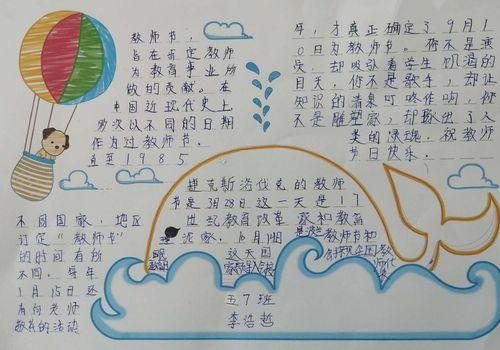 教师节，
旨在肯定教师
为教育事业所
做的贡献。在
中国近现代史上
多次以不同的日期
作为过教师节。
直至1985
年，才真正确定了9月1
0日为教师节。你不是演
员，却吸引着学生饥渴的
目光，你不是歌手，却让
知识的清泉叮咚作响，你
不是雕塑家，却
人
类的灵魂。祝教师
节日快乐。
捷克斯洛伐克的教师
节是3月28日这一天是17
世纪教育改革家和教育
不同国家、地区
订定“教师节”
的时间有所
不同。每年
1月15日还
有向老师
敬礼的活动
这天国
五7班
李浩哲